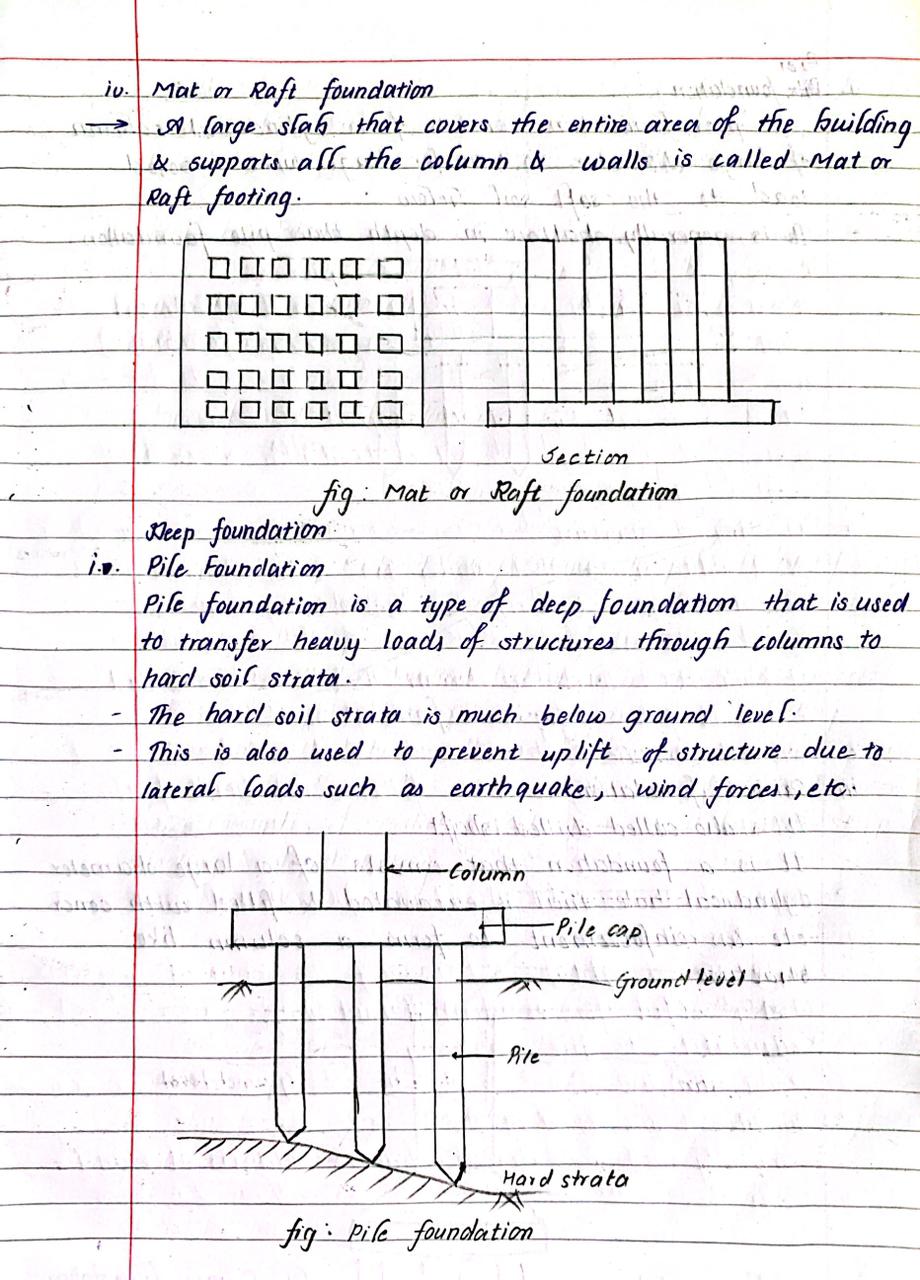 iv. Mat or Raft foundation
→ A large slab that covers the entire area of the building
& supports all the column & walls is called Mat or
Raft footing.
Section
fig: Mat or Raft foundation
Deep foundation
i. Pile Foundation
Pile foundation is a type of deep foundation that is used
to transfer heavy loads of structures through columns to
hard soil strata.
- The hard soil strata is much below ground level.
- This is also used to prevent uplift of structure due to
lateral loads such as earthquake, wind forces, etc.
Column
Pile cap
Ground level
Pile
Hard strata
fig: Pile foundation